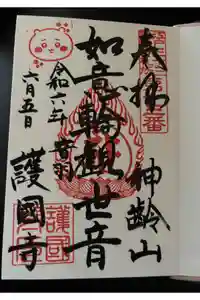 奉拝
神齢山
如意輪觀世音
音羽
護國寺
令和六年
六月五日
護國